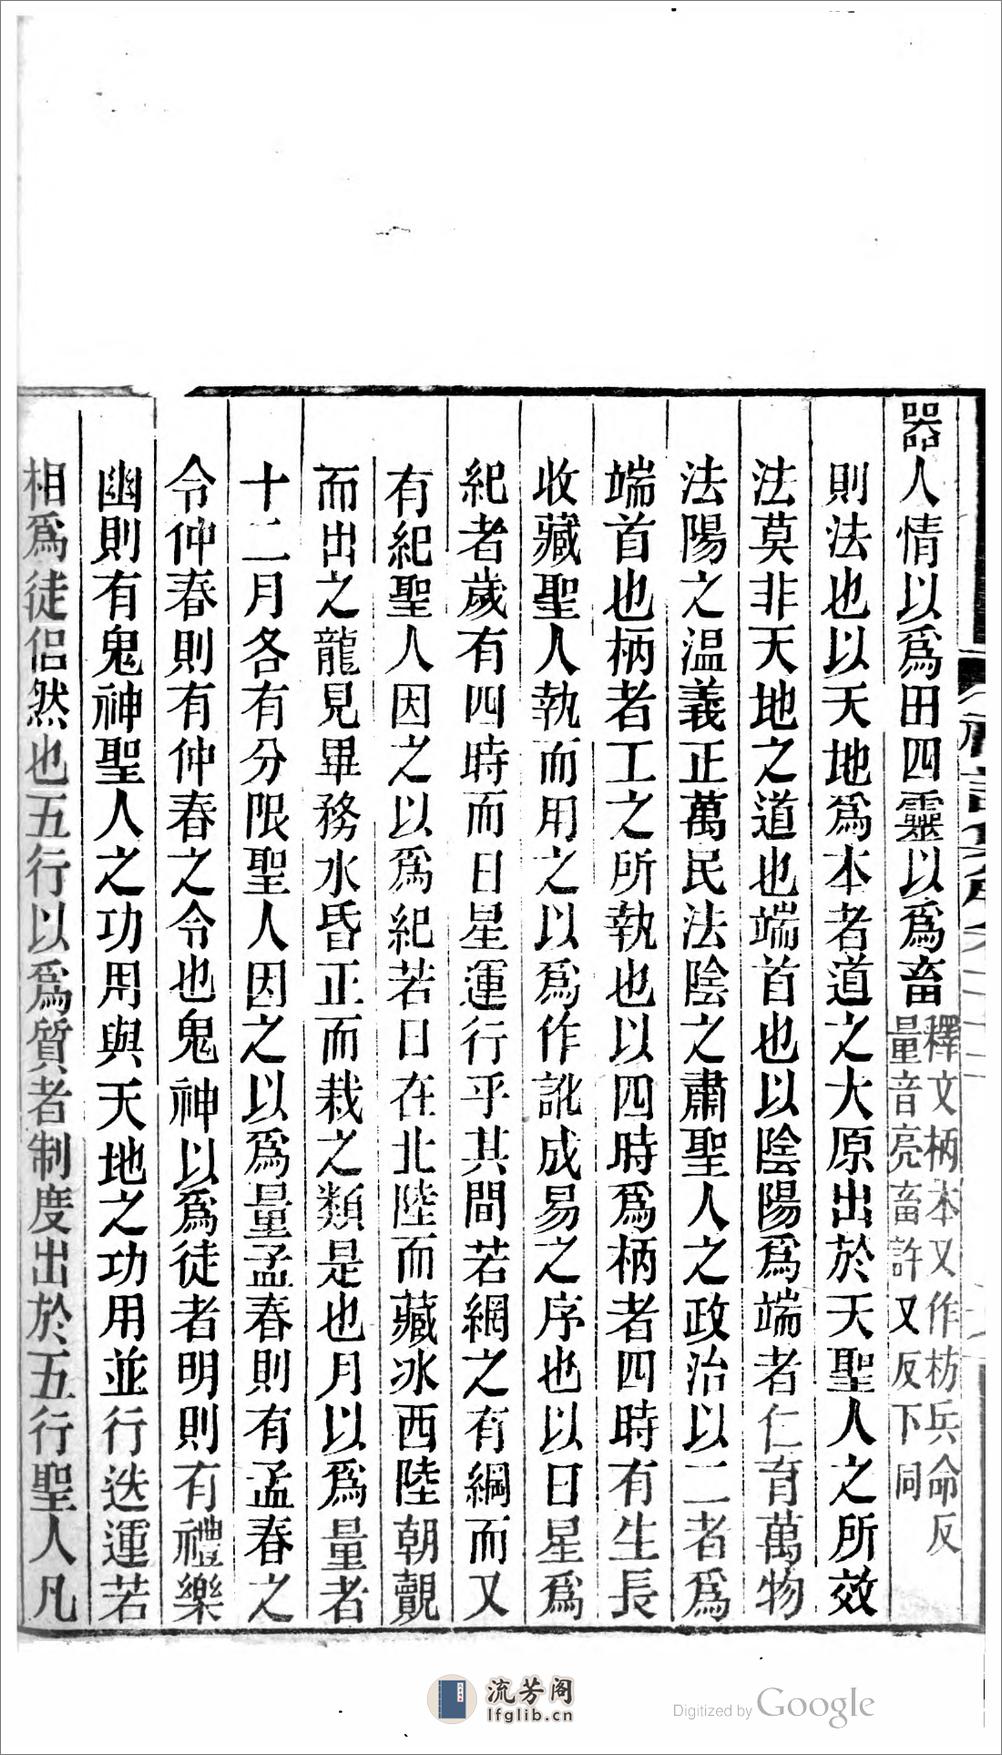 器人情以爲田四靈以爲畜釋文柄本又作枋兵命反
量音亮畜許又反下同
則法也以天地爲本者道之大原出於天聖人之所效
法莫非天地之道也端首也以陰陽爲端者仁育萬物
法陽之温義正萬民法陰之肅聖人之政治以二者爲
端首也柄者工之所執也以四時爲柄者四時有生長
收藏聖人執而用之以爲作訛成易之序也以日星爲
紀者歲有四時而日星運行乎其間若網之有綱而又
有紀聖人因之以爲紀若日在北陸而藏冰西陸朝覿
而出之龍見畢務水昏正而栽之類是也月以爲量者
十二月各有分限聖人因之以爲量孟春則有孟春之
令仲春則有仲春之令也鬼神以爲徒者明則有禮樂
幽則有鬼神聖人之功用與天地之功用並行迭運若
相爲徒侣然也五行以爲質者制度出於五行聖人凡
流芳阁
lfglib.cn
Digitized by Google